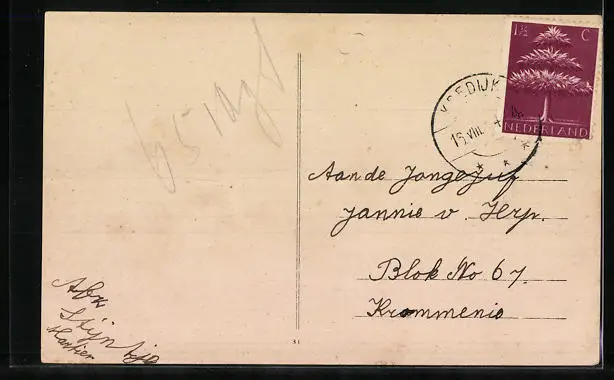 1½ C
NEDERLAND
15 VIII
Aan de Jongejuf
Jannie v. Herp.
Blok No 67.
Krommenie
Afz
Stijntje
31